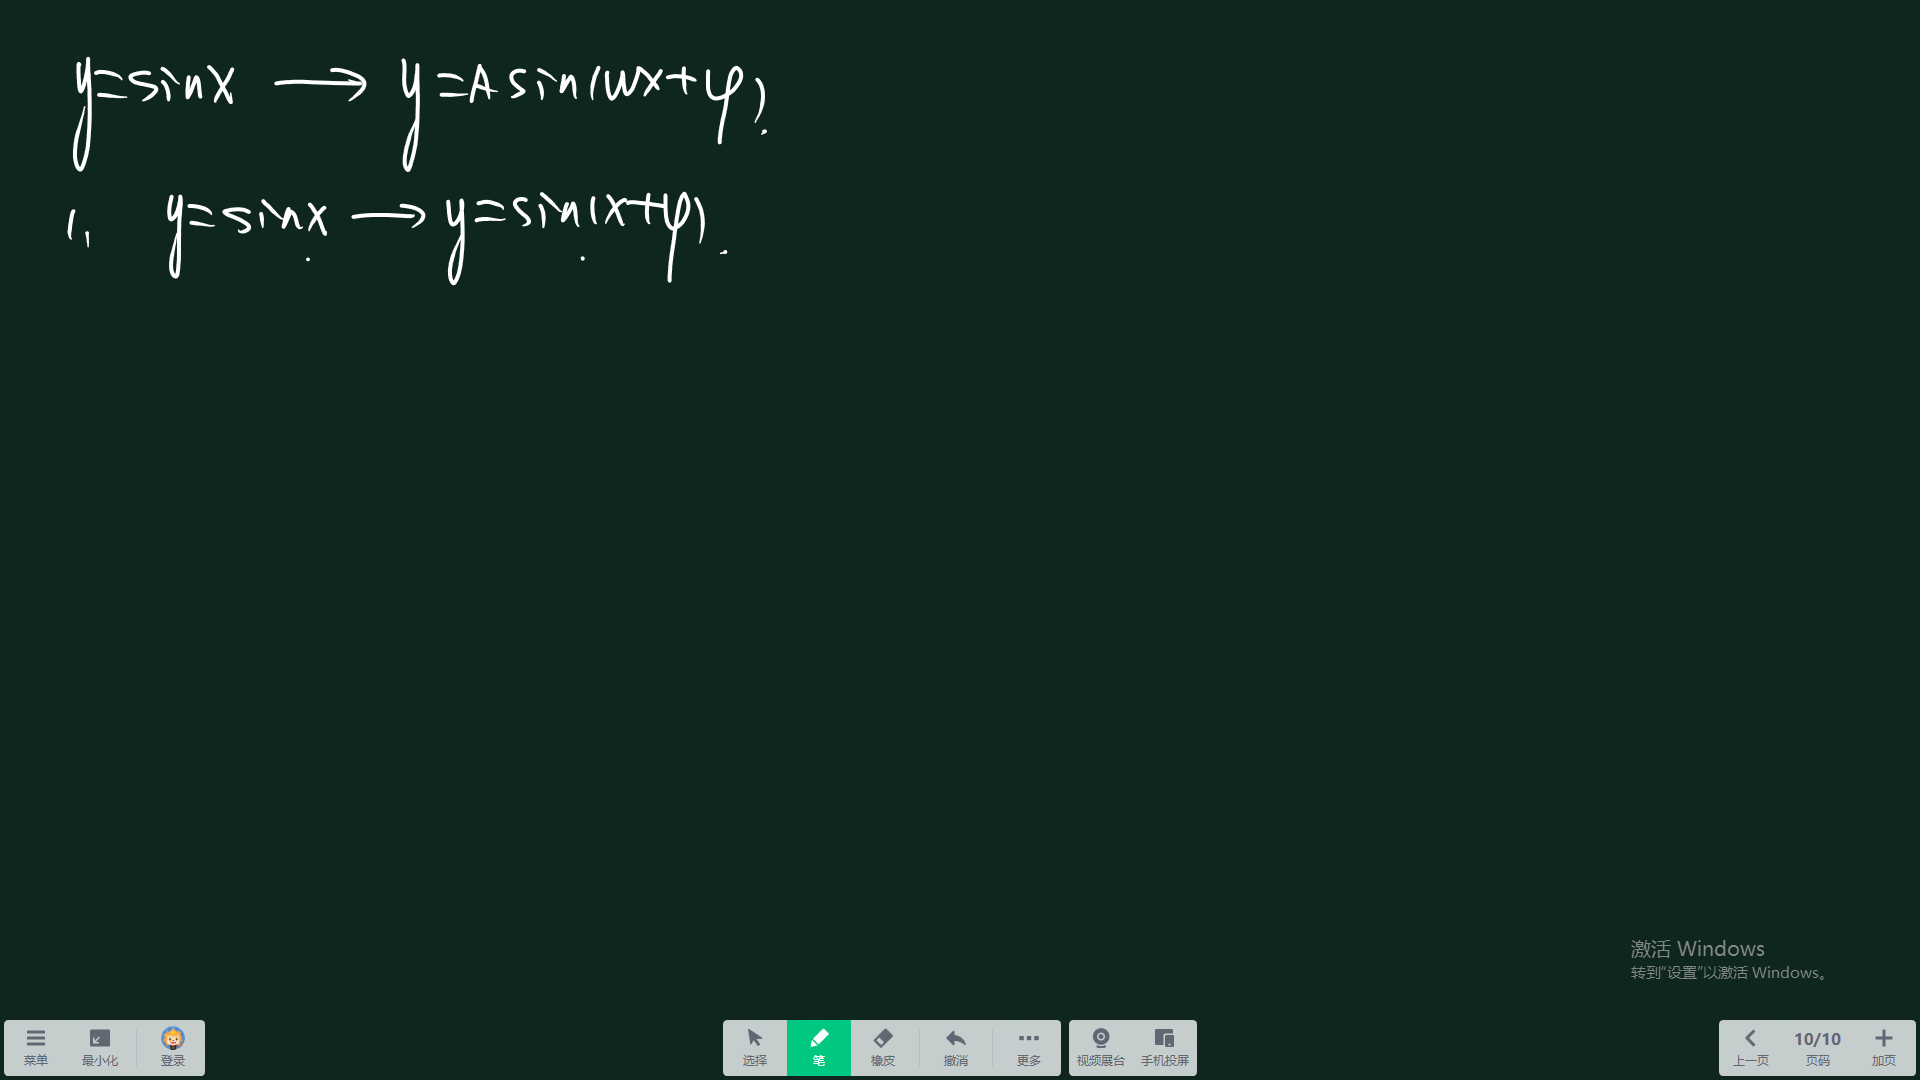 y=sinx → y=Asin(wx+φ).
1、 y=sinx → y=sin(x+φ).
激活 Windows
转到“设置”以激活 Windows。
菜单 最小化 登录 选择 笔 橡皮 撤消 更多 视频展台 手机投屏 上一页 10/10 页码 加页